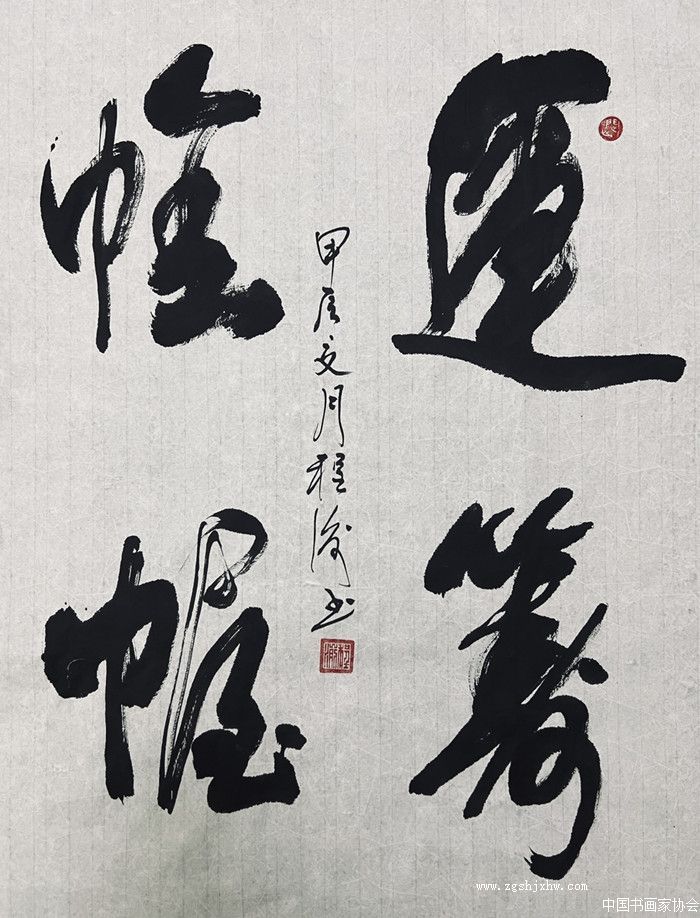 運籌
帷幄
甲辰夏月程书
www.zgshjxhw.com
中国书画家协会